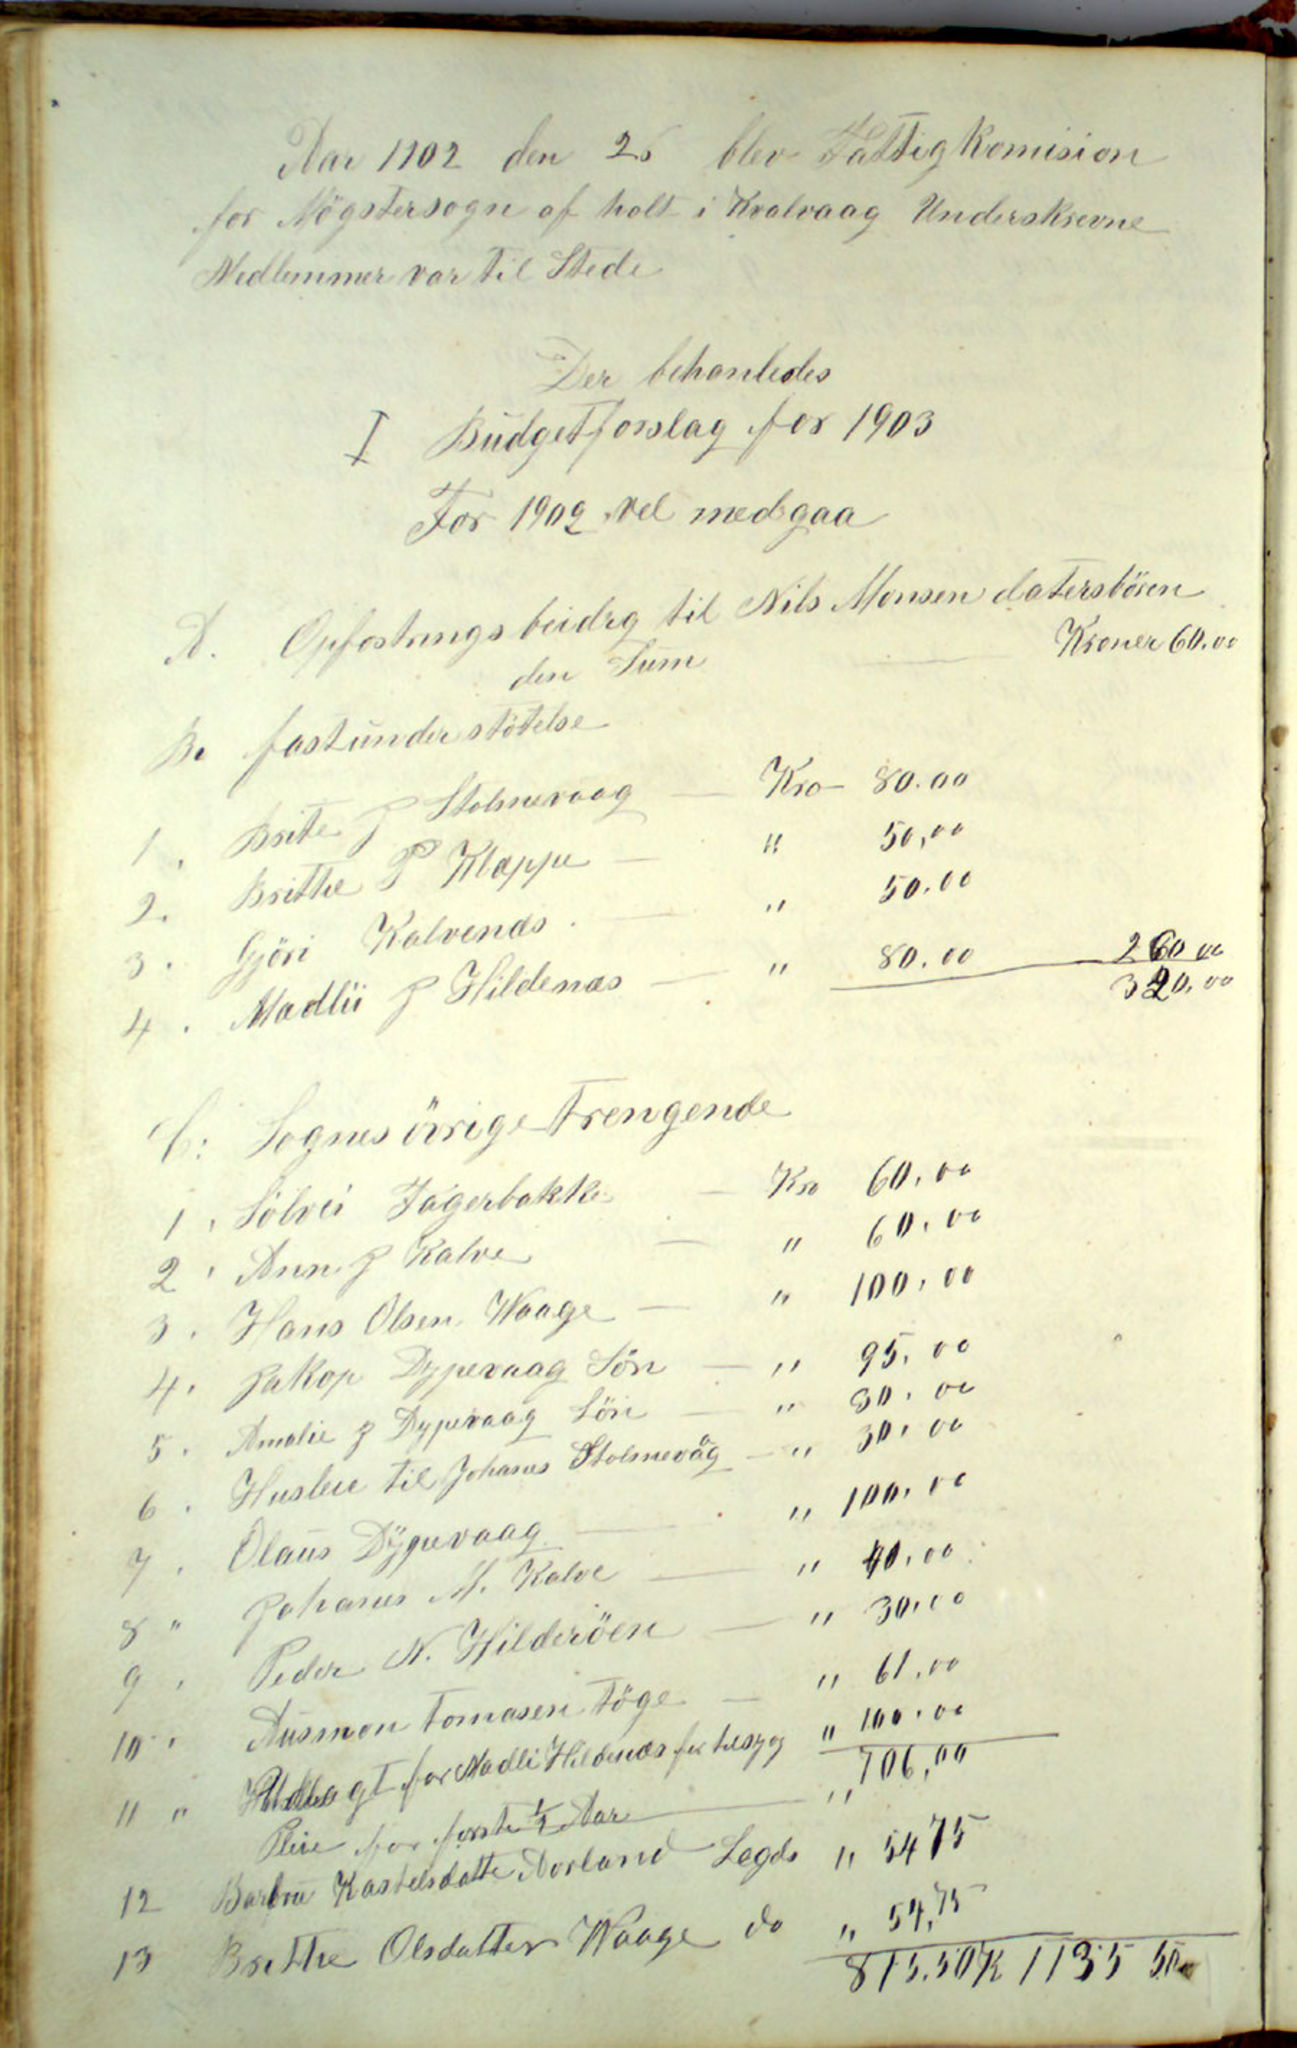 Aar 1902 den 25 blev Fattig Komision
for Mögstersogn af holt i Kvalvaag Underskrevne
Medlemmer var til Stede
Der behanledes
I Budgetforslag for 1903
For 1902 vel medgaa
A. Opfostrings beidrg til Nils Monsen datersbören
den Sum — Kroner 60.00
B. fastunderstötelse
1. Brite J Stolmevaag — Kro — 80.00
2. Brithe P Kleppe — " 50,00
3. Gjöri Kalvenæs. — " 50.00
4. Madlii J Hildenæs — " 80.00 260 00
320.00
C: Sognes övrige Trengende
1. Sölvei Fagerbakke — Kro 60.00
2. Ann J Kalve — " 60.00
3. Hans Olsen Waage — " 100.00
4. Jakop Dypevaag Sön — " 95.00
5. Amalie J Dypevaag Sön — " 30.00
6. Husleie til Johanes Stolmevåg — " 30.00
7. Olaus Dypevaag — " 100.00
8 " Johanes M. Kalve — " 40.00
9. Peder N. Hilderöen — " 30.00
10. Ausmon Tomasen Töge — " 61.00
11 " for Madli Hildenæs for tilsyg og " 100.00
Pleie for forste 1/2 Aar — " 706,00
12 Barbru Kastelsdatte Norland Legds " 54 75
13 Brithe Olsdatter Waage do " 54,75
815.50 K 1135 50